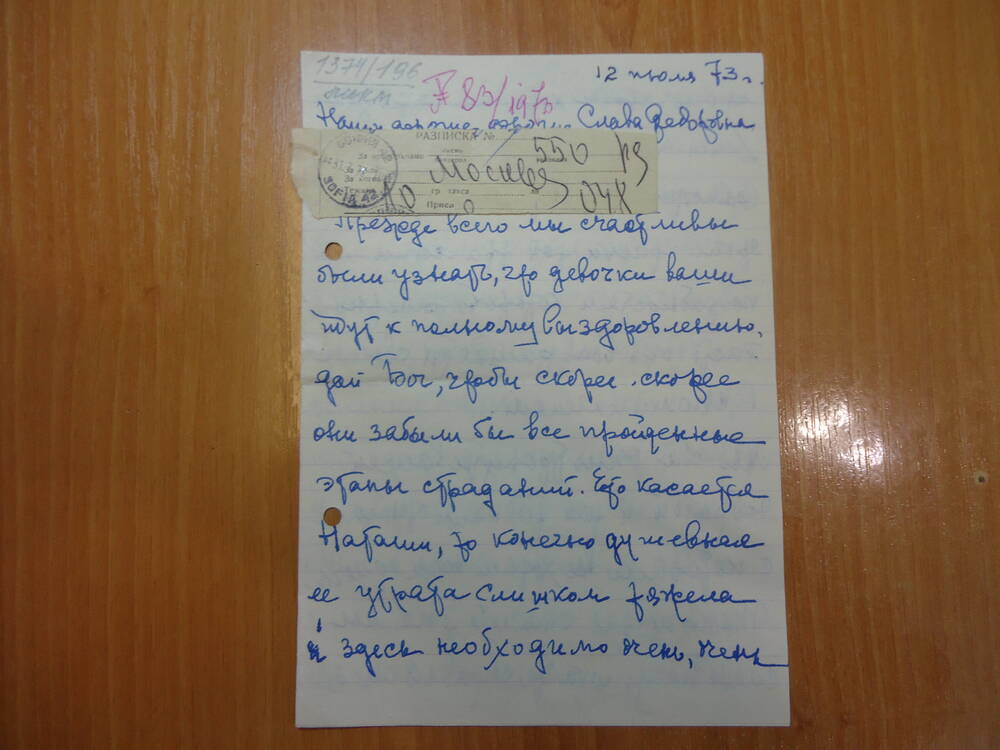 1374/196
12 июля 73 г.
83/1973
Слава Федоровна
РАЗПИСКА №
СОФИЯ
SOFIA
Москва
550
гр. такса
048
Прежде всего мы счастливы
были узнать, что девочки ваши
идут к полному выздоровлению,
дай Бог, чтобы скорее скорее
они забыли бы все пройденные
этапы страданий. Что касается
Наташи, то конечно душевная
ее утрата слишком тяжела
и здесь необходимо очень, очень